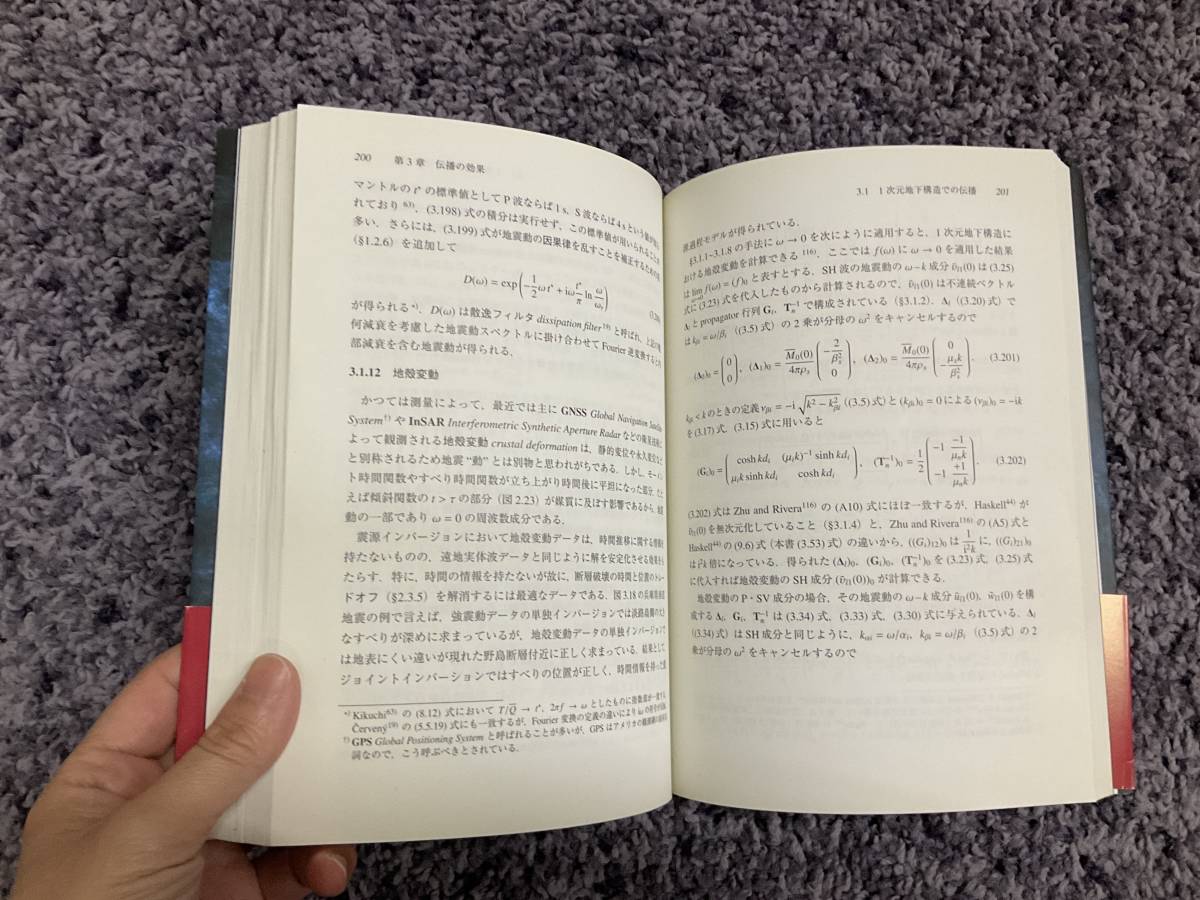 200 第3章 伝播の効果
マントルの t* の標準値として P 波ならば 1 s、S 波ならば 4 s という値が
れており 63)、(3.198) 式の積分は実行せず、この標準値が用いられることが
多い．さらには、(3.199) 式が地震動の因果律を乱すことを補正するための項
(§1.2.6) を追加して
D(ω) = exp(−1/2 ω t* + iω t*/π ln ω/ωr)
が得られる*)．D(ω) は散逸フィルタ dissipation filter 19) と呼ばれ、
何減衰を考慮した地震動スペクトルに掛け合わせて Fourier 逆変換すると
部減衰を含む地震動が得られる．
3.1.12 地殻変動
かつては測量によって，最近では主に GNSS Global Navigation Satellite
System†) や InSAR Interferometric Synthetic Aperture Radar などの
よって観測される地殻変動 crustal deformation は，静的変位や永久変位など
と別称されるため地震“動”とは別物と思われがちである．しかし，モーメン
ト時間関数やすべり時間関数が立ち上がり時間後に平坦になった部分，たと
えば傾斜関数の t > τ の部分（図 2.23）が媒質に及ぼす影響であるから，
動の一部であり ω = 0 の周波数成分である．
震源インバージョンにおいて地殻変動データは，時間推移に関する情報を
持たないものの，遠地実体波データと同じように解を安定化させる効果をも
たらす．特に，時間の情報を持たないが故に，断層破壊の時間と位置のトレー
ドオフ（§2.3.5）を解消するには最適なデータである．図 3.18 の兵庫県南部
地震の例で言えば，強震動データの単独インバージョンでは淡路島側の大き
なすべりが深めに求まっているが，地殻変動データの単独インバージョンで
は地表にくい違いが現れた野島断層付近に正しく求まっている．結果として，
ジョイントインバージョンではすべりの位置が正しく，時間情報を持った
*) Kikuchi 63) の (8.12) 式において T/Q̄ → t*，2πf → ω としたものに
Červený 19) の (5.5.19) 式にも一致するが，Fourier 変換の定義の違いにより iω の
†) GPS Global Positioning System と呼ばれることが多いが，GPS はアメリカの
詞なので，こう呼ぶべきとされている．
3.1 1次元地下構造での伝播 201
過程モデルが得られている．
§3.1.1~3.1.8 の手法に ω → 0 を次のように適用すると，1 次元地下構造に
おける地殻変動を計算できる 116)．ここでは f(ω) に ω → 0 を適用した結果
は lim ω→0 f(ω) = (f)0 と表すとする．SH 波の地震動の ω−k 成分 ῡI1(0) は (3.25)
式に (3.23) 式を代入したものから計算されるので，ῡI1(0) は不連続ベクトル
Δi と propagator 行列 Gi，Tn−1 で構成されている（§3.1.2）．Δi（(3.20) 式）で
は kβi = ω/βi（(3.5) 式）の 2 乗が分母の ω2 をキャンセルするので
(Δ0)0 = (0 0)，(Δ1)0 = M̄0(0)/4πρs (−2/βs2 0)，(Δ2)0 = M̄0(0)/4πρs (0 −μsk/βs2)．(3.201)
kβi < k のときの定義 νβi = −i√(k2 − kβi2)（(3.5) 式）と (kβi)0 = 0 による (νβi)0 = −ik
を (3.17) 式，(3.15) 式に用いると
(Gi)0 = (cosh kdi (μik)−1 sinh kdi μik sinh kdi cosh kdi)，(Tn−1)0 = 1/2 (−1 −1/μnk −1 +1/μnk)．(3.202)
(3.202) 式は Zhu and Rivera 116) の (A10) 式にほぼ一致するが，Haskell 44) が
ῡI1(0) を無次元化していること（§3.1.4）と，Zhu and Rivera 116) の (A5) 式と
Haskell 44) の (9.6) 式（本書 (3.53) 式）の違いから，((Gi)12)0 は 1/i2k に，((Gi)21)0
は i2k 倍になっている．得られた (Δi)0，(Gi)0，(Tn−1)0 を (3.23) 式，(3.25) 式
に代入すれば地殻変動の SH 成分 (ῡI1(0))0 が計算できる．
地殻変動の P・SV 成分の場合，その地震動の ω−k 成分 ūI1(0)，w̄I1(0) を構
成する Δi，Gi，Tn−1 は (3.34) 式，(3.33) 式，(3.30) 式に与えられている．Δi
（(3.34) 式）は SH 成分と同じように，kαi = ω/αi，kβi = ω/βi（(3.5) 式）の 2
乗が分母の ω2 をキャンセルするので